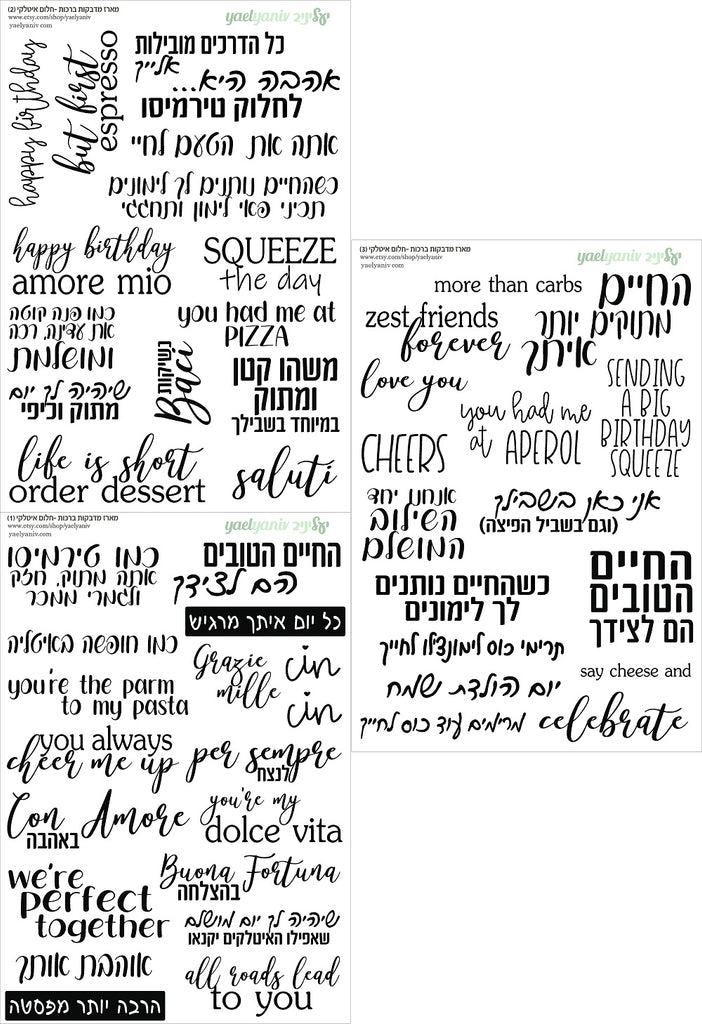 מארז מדבקות ברכות -חלום איטלקי (2)
www.etsy.com/shop/yaelyaniv
yaelyaniv com
yaelyaniv יעליניב
happy birthday
but first
espresso
כל הדרכים מובילות
אלייך
אהבה היא...
לחלוק טירמיסו
אתה את הטעם לחיי
כשהחיים נותנים לך לימונים
תכיני פאי לימון ותחגגי
happy birthday
amore mio
SQUEEZE
the day
כמו פנה קוטה
את עדינה, רכה
ומושלמת
you had me at
PIZZA
נשיקות
Baci
משהו קטן
ומתוק
במיוחד בשבילך
שיהיה לך יום
מתוק וכיפי
life is short
order dessert
saluti
מארז מדבקות ברכות -חלום איטלקי (1)
www.etsy.com/shop/yaelyaniv
yaelyaniv com
yaelyaniv יעליניב
כמו טירמיסו
אתה מתוק, חזק
ולגמרי ממכר
החיים הטובים
הם לצידך
כל יום איתך מרגיש
כמו חופשה באיטליה
Grazie
mille
cin
cin
you're the parm
to my pasta
you always
cheer me up
per sempre
לנצח
Con Amore
באהבה
you're my
dolce vita
we're
perfect
together
Buona Fortuna
בהצלחה
שיהיה לך יום מושלם
שאפילו האיטלקים יקנאו
אוהבת אותך
all roads lead
to you
הרבה יותר מפסטה
מארז מדבקות ברכות -חלום איטלקי (3)
www.etsy.com/shop/yaelyaniv
yaelyaniv com
yaelyaniv יעליניב
more than carbs
החיים
מתוקים יותר
איתך
zest friends
forever
love you
you had me
at APEROL
SENDING
A BIG
BIRTHDAY
SQUEEZE
CHEERS
אנחנו יחד
השילוב
המושלם
אני כאן בשבילך
(וגם בשביל הפיצה)
החיים
הטובים
הם לצידך
כשהחיים נותנים
לך לימונים
תרימי כוס לימונצ'לו לחייך
say cheese and
celebrate
יום הולדת שמח
מרימים עוד כוס לחייך